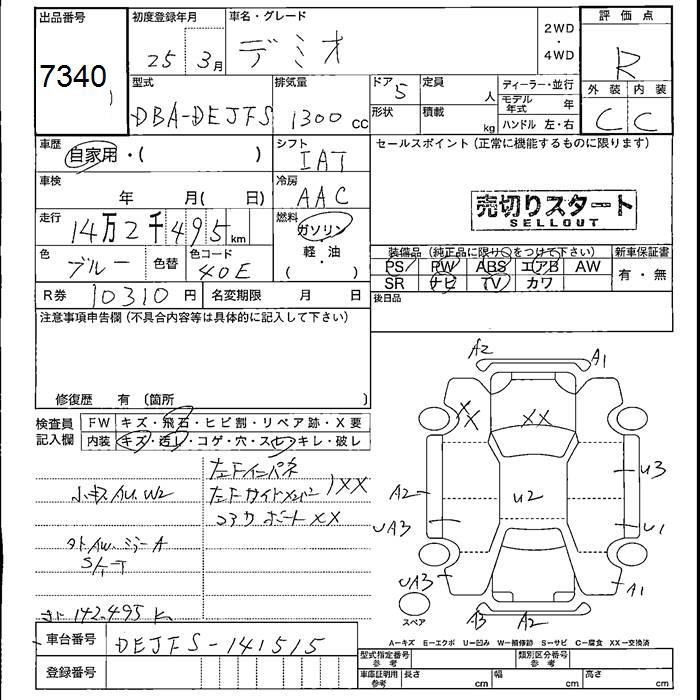 出品番号 初度登録年月 車名・グレード 2WD・4WD 評価点
7340 25年 3月 デミオ R
外装 内装
C C
型式 排気量 ドア 5 定員 人 ディーラー・並行
DBA-DEJFS 1300 cc 形状 積載 kg モデル年式 年
ハンドル 左・右
車歴 自家用・( ) シフト IAT セールスポイント(正常に機能するものに限ります)
車検 年 月( 日) 冷房 AAC
売切りスタート
SELLOUT
走行 14万2千495km 燃料 ガソリン
軽・油
( )
色 ブルー 色替 色コード 40E
装備品(純正品に限り○をつけて下さい) 新車保証書
PS PW ABS エアB AW 有・無
SR ナビ TV カワ
R券 10310円 名変期限 月 日 後日品
注意事項申告欄(不具合内容等は具体的に記入して下さい)
修復歴 有 〔箇所 〕
検査員記入欄 FW キズ・飛石・ヒビ割・リペア跡・X要
内装 キズ・汚レ・コゲ・穴・スレ・キレ・破レ
左Fインパネ
左Fサイドメンバー XX
コアサポートXX
小キズ AU.W2
142,495 K
A2 A1
XX XX
A2 U2 U3
UA3 U1
UA3 A1
A3 A2
スペア
A-キズ E-エクボ U-凹み W-補修跡 S-サビ C-腐食 XX-交換済
車台番号 DEJFS-141515
登録番号
型式指定番号 参考 類別区分番号 参考
車庫証明用 参考 長さ cm 幅 cm 高さ cm